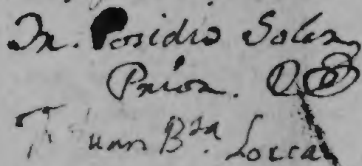 Fr. Posidio Soler
Prior.
Fr. Juan B.ta Lorca